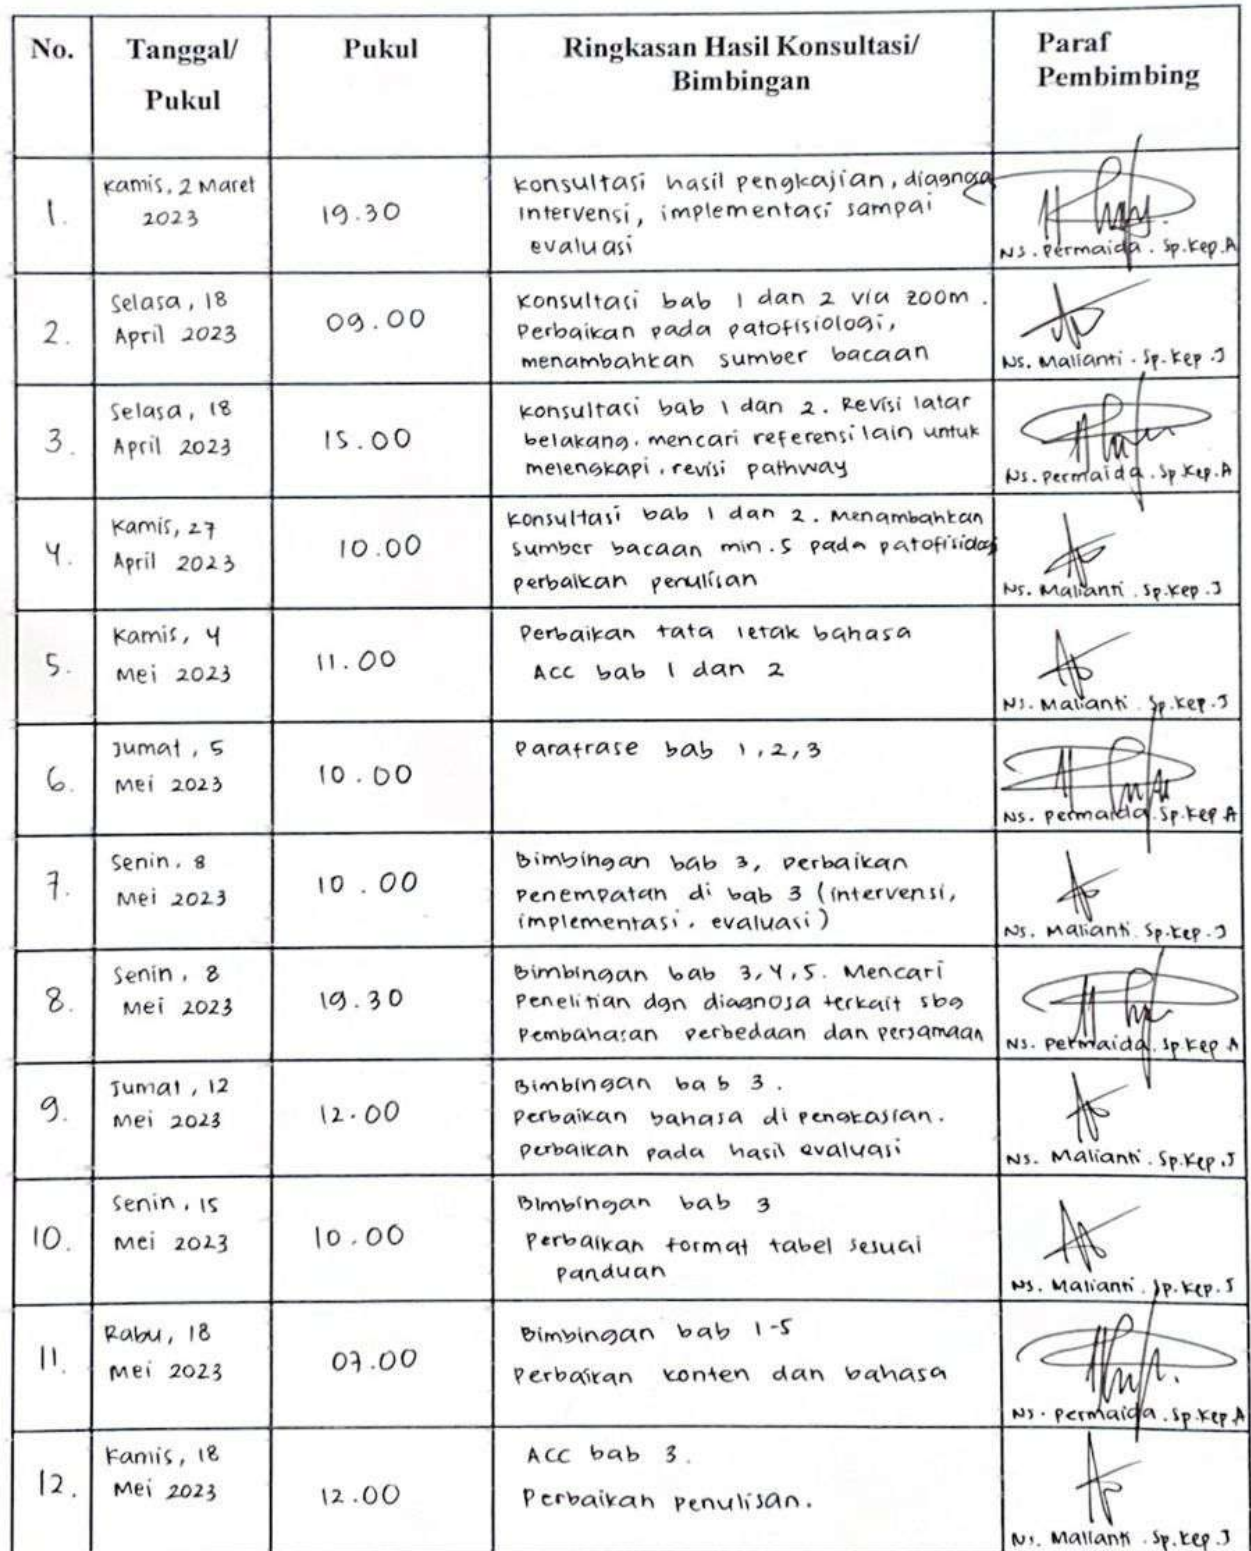 No.
Tanggal/
Pukul
Pukul
Ringkasan Hasil Konsultasi/
Bimbingan
Paraf
Pembimbing
1.
Kamis, 2 Maret
2023
19.30
Konsultasi hasil pengkajian, diagnosa
intervensi, implementasi sampai
evaluasi
Ns. Permaida. Sp.Kep.A
2.
Selasa, 18
April 2023
09.00
Konsultasi bab 1 dan 2 via zoom.
Perbaikan pada patofisiologi,
menambahkan sumber bacaan
Ns. Malianti. Sp.Kep.J
3.
Selasa, 18
April 2023
15.00
Konsultasi bab 1 dan 2. Revisi latar
belakang. mencari referensi lain untuk
melengkapi, revisi pathway
Ns. Permaida. Sp.Kep.A
4.
Kamis, 27
April 2023
10.00
Konsultasi bab 1 dan 2. Menambahkan
sumber bacaan min. 5 pada patofisiologi
perbaikan penulisan
Ns. Malianti. Sp.Kep.J
5.
Kamis, 4
Mei 2023
11.00
Perbaikan tata letak bahasa
ACC bab 1 dan 2
Ns. Malianti. Sp.Kep.J
6.
Jumat, 5
Mei 2023
10.00
Parafrase bab 1,2,3
Ns. Permaida. Sp.Kep.A
7.
Senin, 8
Mei 2023
10.00
Bimbingan bab 3, perbaikan
penempatan di bab 3 (intervensi,
implementasi, evaluasi)
Ns. Malianti. Sp.Kep.J
8.
Senin, 8
Mei 2023
19.30
Bimbingan bab 3,4,5. Mencari
Penelitian dgn diagnosa terkait sbg
Pembahasan perbedaan dan persamaan
Ns. Permaida. Sp.Kep.A
9.
Jumat, 12
Mei 2023
12.00
Bimbingan bab 3.
Perbaikan bahasa di pengkasian.
perbaikan pada hasil evaluasi
Ns. Malianti. Sp.Kep.J
10.
Senin, 15
Mei 2023
10.00
Bimbingan bab 3
perbaikan format tabel sesuai
panduan
Ns. Malianti. Sp.Kep.J
11.
Rabu, 18
Mei 2023
07.00
Bimbingan bab 1-5
Perbaikan konten dan bahasa
Ns. Permaida. Sp.Kep.A
12.
Kamis, 18
Mei 2023
12.00
ACC bab 3.
Perbaikan penulisan.
Ns. Malianti. Sp.Kep.J